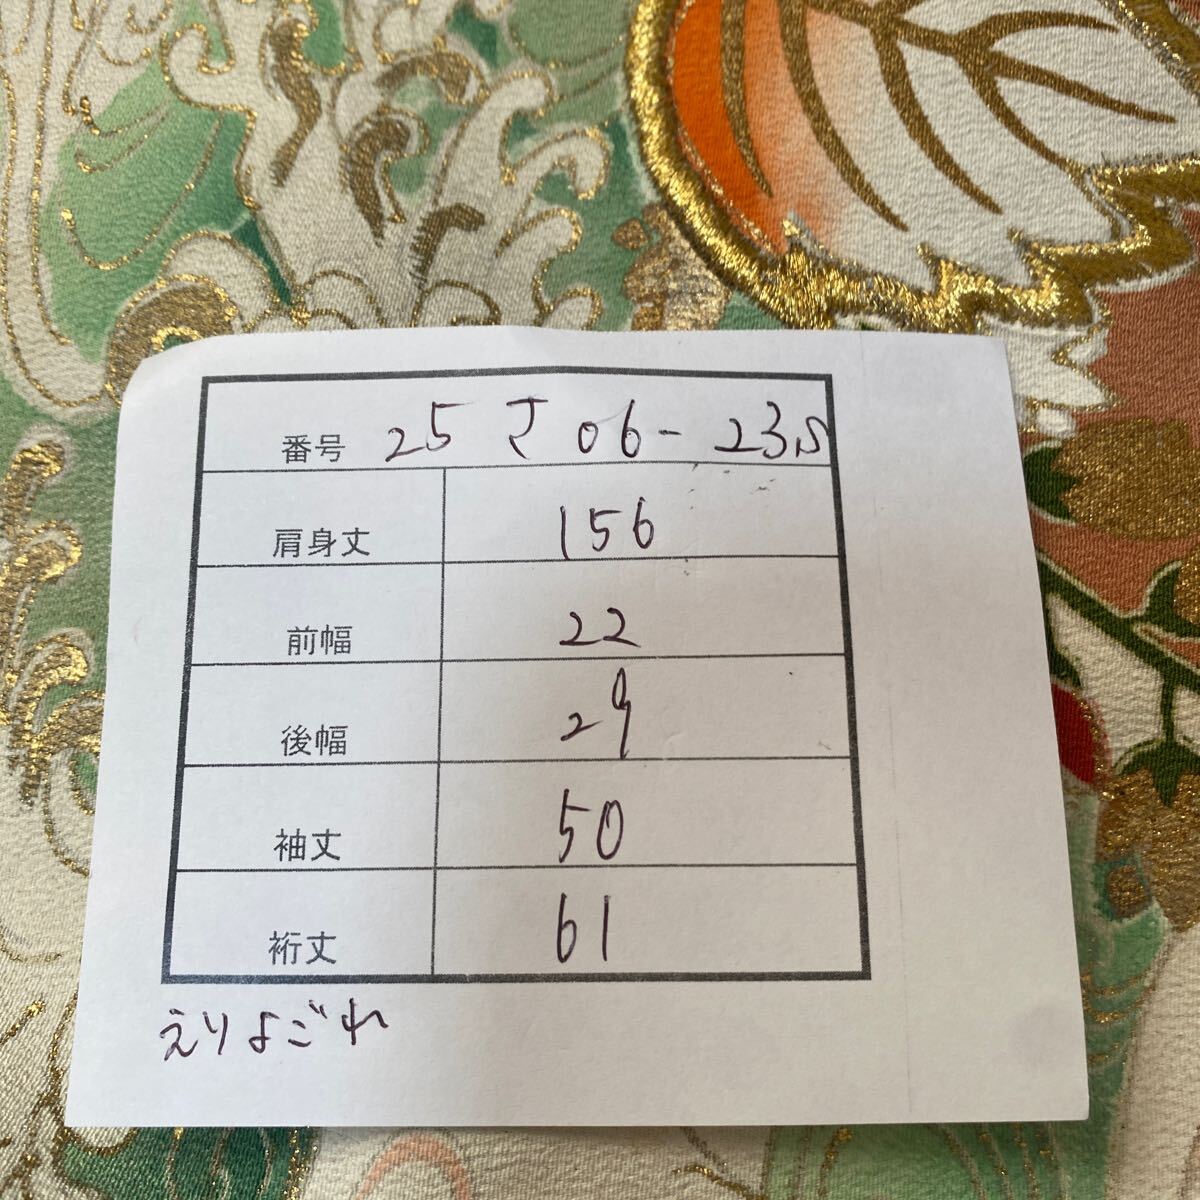 番号 25 さ 06-23s
肩身丈 156
前幅 22
後幅 29
袖丈 50
裄丈 61
えりよごれ